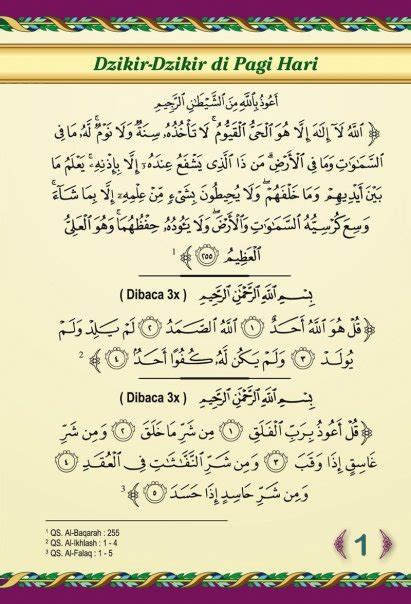 Dzikir-Dzikir di Pagi Hari
أَعُوذُ بِاللَّهِ مِنَ الشَّيْطَانِ الرَّجِيمِ
﴿ اللَّهُ لَآ إِلَٰهَ إِلَّا هُوَ الْحَيُّ الْقَيُّومُ ۚ لَا تَأْخُذُهُۥ سِنَةٌ وَلَا نَوْمٌ ۚ لَّهُۥ مَا فِى
السَّمَٰوَٰتِ وَمَا فِى الْأَرْضِ ۗ مَن ذَا الَّذِى يَشْفَعُ عِندَهُۥٓ إِلَّا بِإِذْنِهِۦ ۚ يَعْلَمُ مَا
بَيْنَ أَيْدِيهِمْ وَمَا خَلْفَهُمْ ۖ وَلَا يُحِيطُونَ بِشَىْءٍ مِّنْ عِلْمِهِۦٓ إِلَّا بِمَا شَآءَ ۚ
وَسِعَ كُرْسِيُّهُ السَّمَٰوَٰتِ وَالْأَرْضَ ۖ وَلَا يَـُٔودُهُۥ حِفْظُهُمَا ۚ وَهُوَ الْعَلِىُّ
الْعَظِيمُ ﴿٢٥٥﴾ ¹
بِسْمِ اللَّهِ الرَّحْمَٰنِ الرَّحِيمِ ( Dibaca 3x )
﴿ قُلْ هُوَ اللَّهُ أَحَدٌ ﴿١﴾ اللَّهُ الصَّمَدُ ﴿٢﴾ لَمْ يَلِدْ وَلَمْ
يُولَدْ ﴿٣﴾ وَلَمْ يَكُن لَّهُۥ كُفُوًا أَحَدٌ ﴿٤﴾ ﴾ ²
بِسْمِ اللَّهِ الرَّحْمَٰنِ الرَّحِيمِ ( Dibaca 3x )
﴿ قُلْ أَعُوذُ بِرَبِّ الْفَلَقِ ﴿١﴾ مِن شَرِّ مَا خَلَقَ ﴿٢﴾ وَمِن شَرِّ
غَاسِقٍ إِذَا وَقَبَ ﴿٣﴾ وَمِن شَرِّ النَّفَّٰثَٰتِ فِى الْعُقَدِ ﴿٤﴾
وَمِن شَرِّ حَاسِدٍ إِذَا حَسَدَ ﴿٥﴾ ﴾ ³
¹ QS. Al-Baqarah : 255
² QS. Al-Ikhlash : 1 - 4
³ QS. Al-Falaq : 1 - 5
1